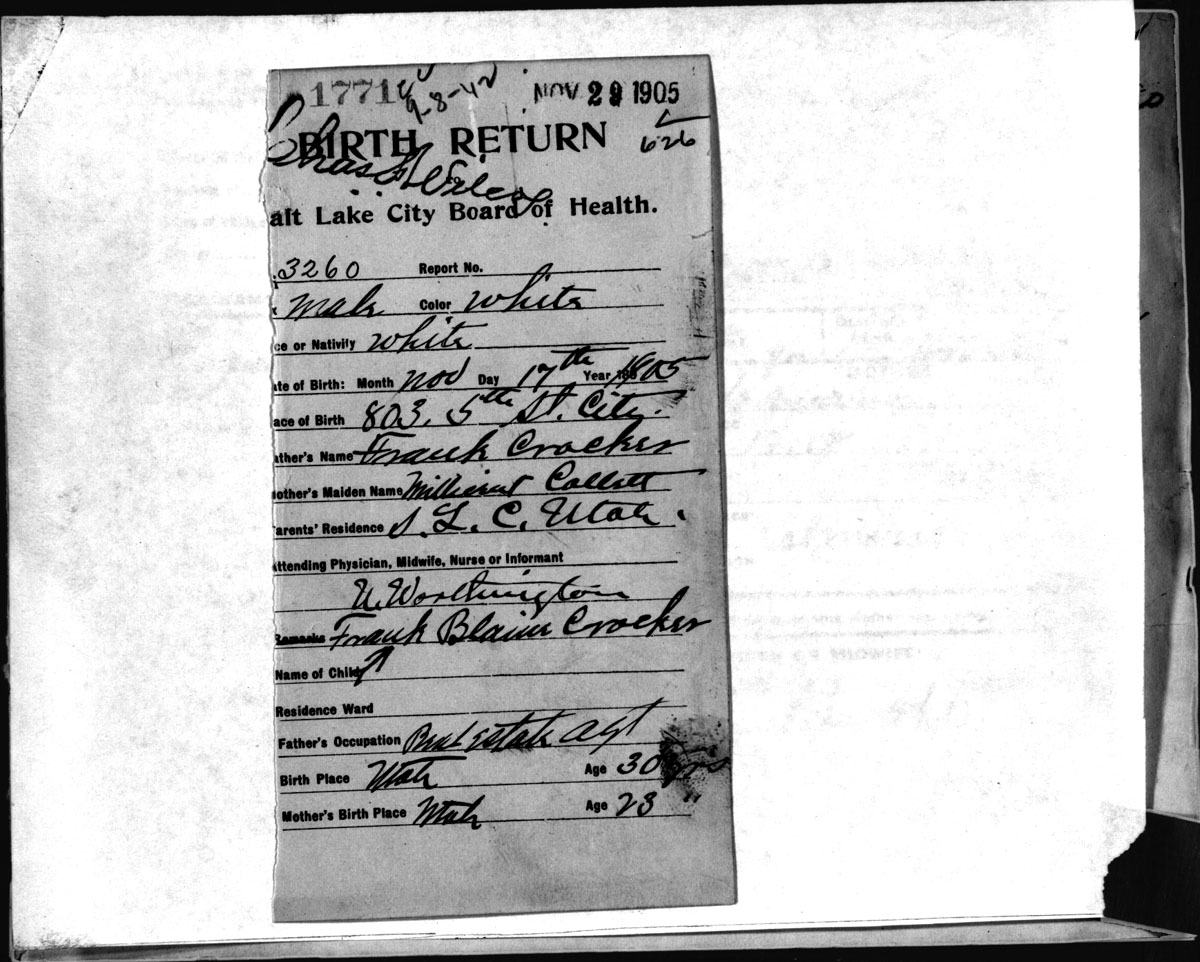 17714 9-8-42 NOV 29 1905
BIRTH RETURN 626
Chas
alt Lake City Board of Health.
3260 Report No.
Male Color White
ce or Nativity White
ate of Birth: Month Nov Day 17th Year 1905
ace of Birth 803. 5th St. City.
ather's Name Frank Crocker
other's Maiden Name Millicent Collett
arents' Residence S. L. C. Utah.
ttending Physician, Midwife, Nurse or Informant
U. Worthington
Remarks Frank Blaine Crocker
Name of Child
Residence Ward
Father's Occupation Real Estate Agt
Birth Place Utah Age 30 yrs
Mother's Birth Place Utah Age 23 "